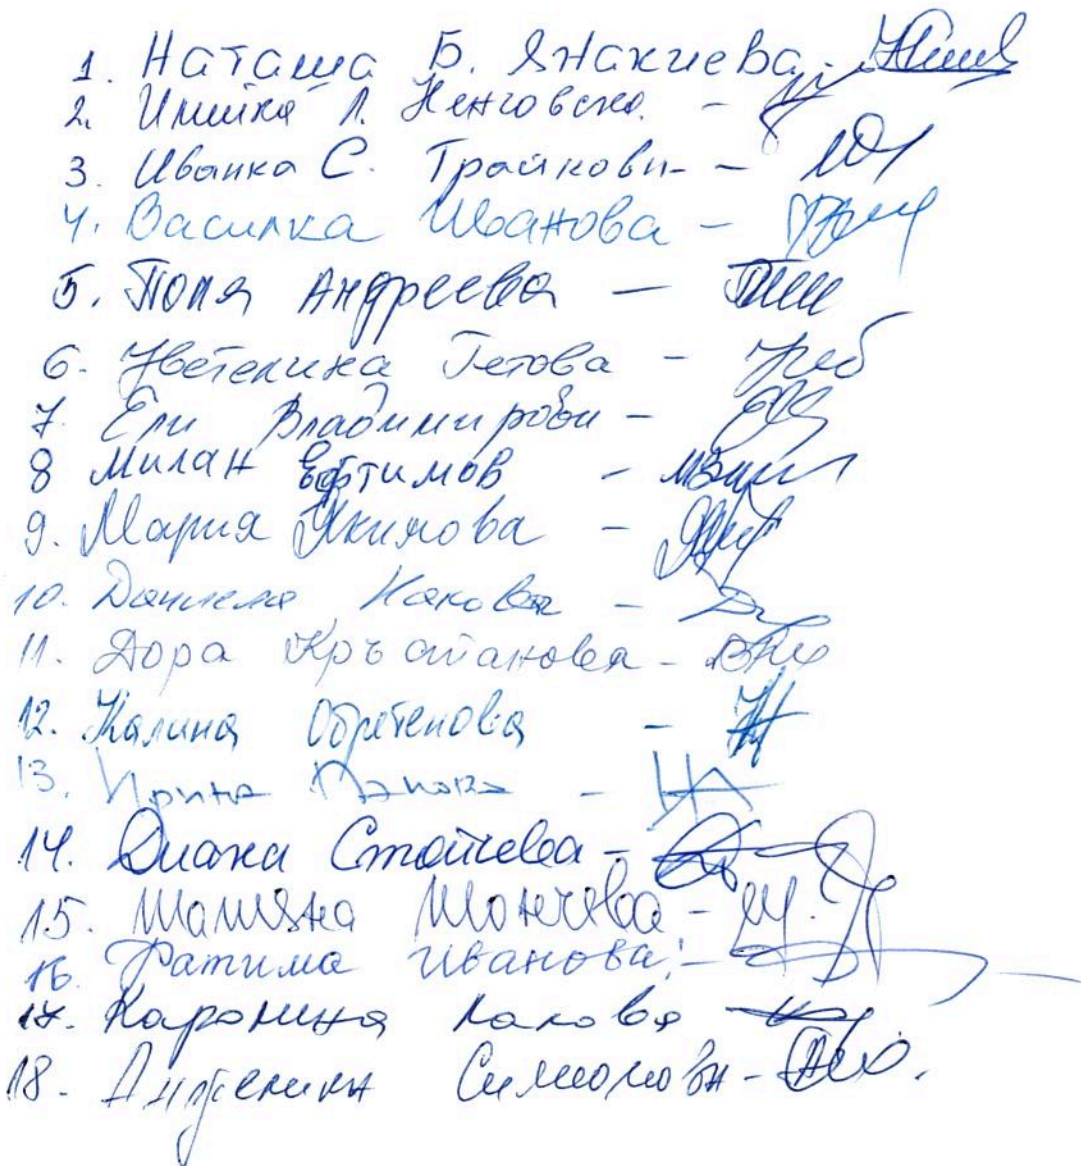 1. Наташа Б. Янакиева -
2. Илийка Л. -
3. Иванка С. Трайкова - -
4. Василка Иванова -
5. Поля Андреева -
6. Цветелина Гетова -
7. Ели Владимирова -
8 Милан Евтимов -
9. Мария Якимова -
10. Даниела Какова -
11. Дора Кръстанова -
12. Калина Обретенова -
13. Ирина Панова -
14. Диана Стойчева -
15. Татяна Тончева -
16. Фатима Иванова -
17. Каролина
18. Анжелика Симеонова -